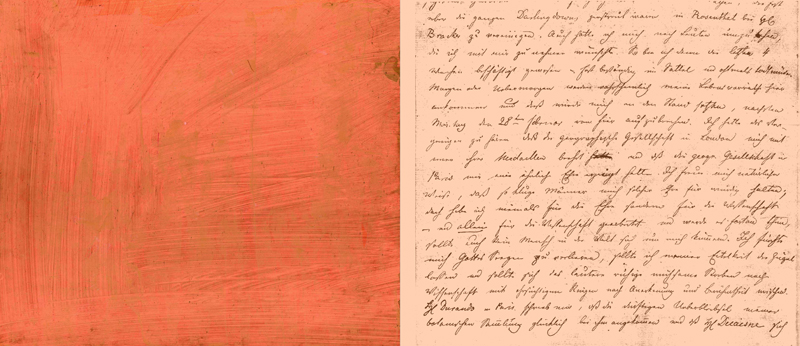 über die ganzen Darling downs zerstreut waren in Rosenthal bei
Bracker zu vereinigen. Auch hatte ich mich, nach Leuten umzusehen,
die ich mit mir zu nehmen wünschte. So bin ich denn die letzten 4
Wochen beschäftigt gewesen beständig im Sattel und oftmals todtmüde.
Morgen oder Uebermorgen werden wahrscheinlich meine Lebensvorräthe hier
ankommen und dies würde mich in den Stand setzen, nächsten
Montag den 28ten Februar von hier aufzubrechen. Ich hatte das Ver-
gnügen zu hören daß die geographische Gesellschaft in London mich mit
einer ihrer Medaillen beehrt und daß die geogr. Gesellschaft in
Paris mir eine ähnliche Ehre erzeigt hatte. Ich freue mich natürlicher
Weise, daß so kluge Männer mich solcher Ehre für würdig halten;
doch habe ich niemals für die Ehre sondern für die Wissenschaft
und allein für die Wissenschaft gearbeitet und werde es fortan thun,
sollte auch kein Mensch in der Welt sich um mich kümmern. Ich fürchte
mich Gottes Seegen zu verlieren, sollte ich meiner Eitelkeit die Zügel
lassen und sollte sich das lautere ruhige mühsame Streben nach
Wissenschaft mit ehrsüchtigem Ringen nach Anerkennung und Berühmtheit mischen.
Hr Durando in Paris schrieb mir, daß die dürftigen Ueberbleibsel meiner
botanischen Sammlung glücklich bei ihm angekommen und daß Hr Decaisne sich